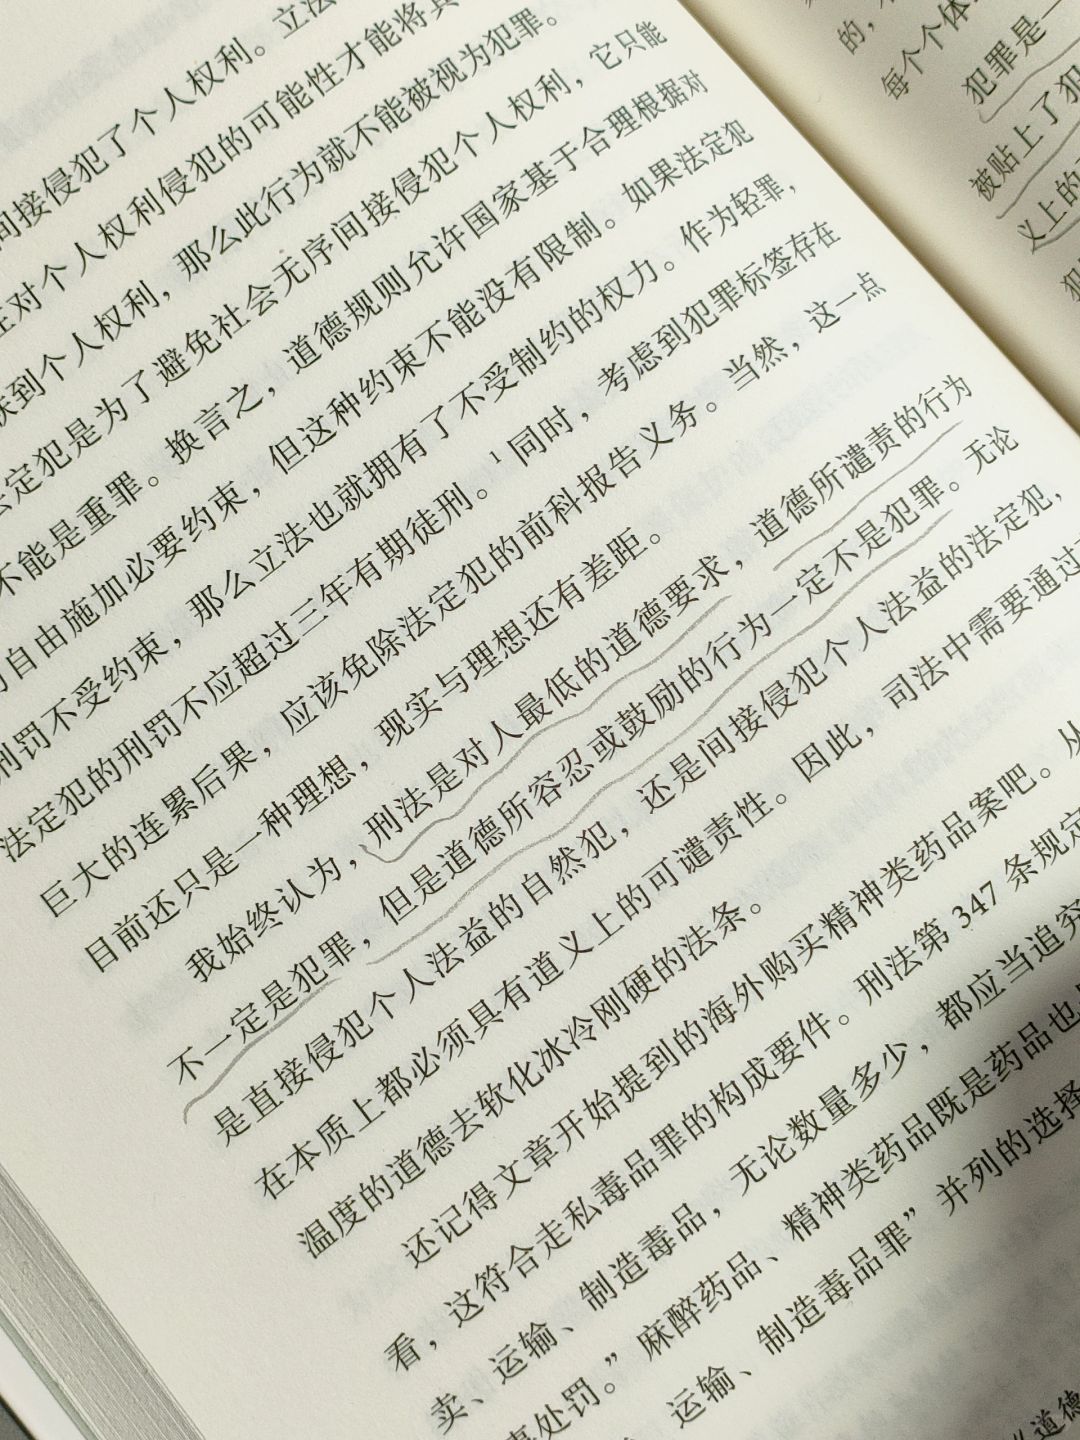 间接侵犯了个人权利。立法
对个人权利侵犯的可能性才能将其
到个人权利，那么此行为就不能被视为犯罪。
定犯是为了避免社会无序间接侵犯个人权利，它只能
不能是重罪。换言之，道德规则允许国家基于合理根据对
自由施加必要约束，但这种约束不能没有限制。如果法定犯
刑罚不受约束，那么立法也就拥有了不受制约的权力。作为轻罪，
法定犯的刑罚不应超过三年有期徒刑。¹同时，考虑到犯罪标签存在
巨大的连累后果，应该免除法定犯的前科报告义务。当然，这一点
目前还只是一种理想，现实与理想还有差距。
我始终认为，刑法是对人最低的道德要求，道德所谴责的行为
不一定是犯罪，但是道德所容忍或鼓励的行为一定不是犯罪。无论
是直接侵犯个人法益的自然犯，还是间接侵犯个人法益的法定犯，
在本质上都必须具有道义上的可谴责性。因此，司法中需要通过
温度的道德去软化冰冷刚硬的法条。
还记得文章开始提到的海外购买精神类药品案吧。从
看，这符合走私毒品罪的构成要件。刑法第 347 条规定
卖、运输、制造毒品，无论数量多少，都应当追究
事处罚。”麻醉药品、精神类药品既是药品也
运输、制造毒品罪”并列的选择
《道德
的，
每个个体
犯罪是一
被贴上了犯
义上的
犯